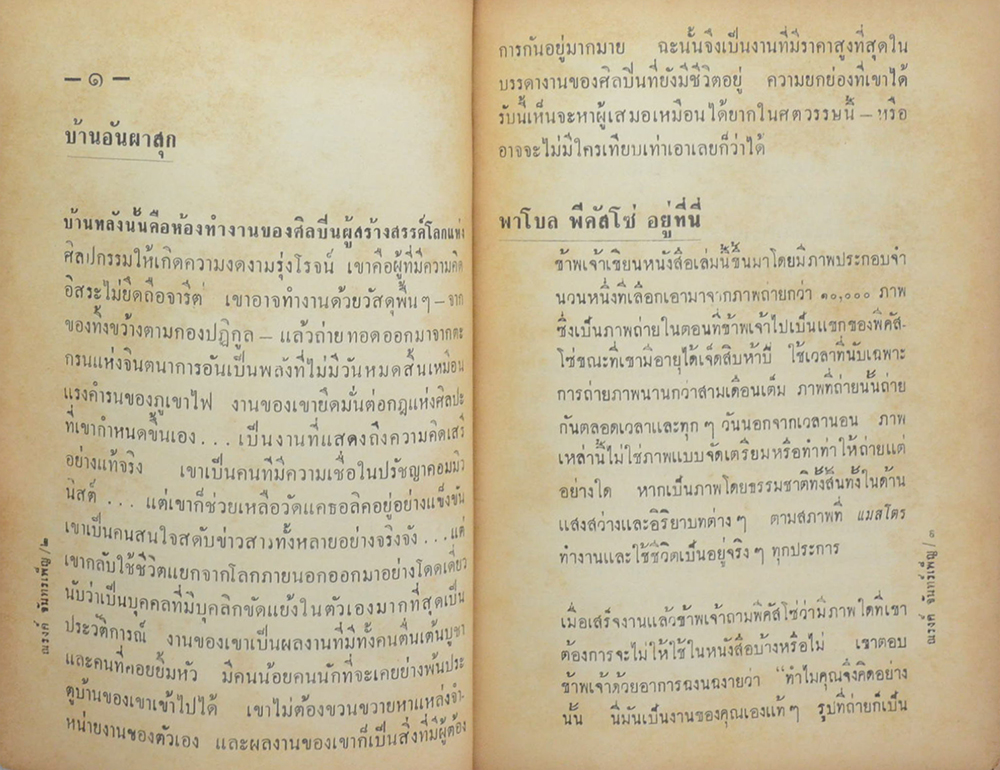 — ๑ —
บ้านอันผาสุก
บ้านหลังนั้นคือห้องทำงานของศิลปินผู้สร้างสรรค์โลกแห่ง
ศิลปกรรมให้เกิดความงดงามรุ่งโรจน์ เขาคือผู้ที่มีความคิด
อิสระไม่ยึดถือจารีต เขาอาจทำงานด้วยวัสดุพื้นๆ — จาก
ของทิ้งขว้างตามกองปฏิกูล — แล้วถ่ายทอดออกมาจากตะ
กรนแห่งจินตนาการอันเป็นพลังที่ไม่มีวันหมดสิ้นเหมือน
แรงคำรนของภูเขาไฟ งานของเขายึดมั่นต่อกฎแห่งศิลปะ
ที่เขากำหนดขึ้นเอง . . . เป็นงานที่แสดงถึงความคิดเสรี
อย่างแท้จริง เขาเป็นคนที่มีความเชื่อในปรัชญาคอมมิว
นิสต์ . . . แต่เขาก็ช่วยเหลือวัดแคธอลิคอยู่อย่างแข็งขัน
เขาเป็นคนสนใจสดับข่าวสารทั้งหลายอย่างจริงจัง . . . แต่
เขากลับใช้ชีวิตแยกจากโลกภายนอกออกมาอย่างโดดเดี่ยว
นับว่าเป็นบุคคลที่มีบุคลิกขัดแย้งในตัวเองมากที่สุดเป็น
ประวัติการณ์ งานของเขาเป็นผลงานที่มีทั้งคนตื่นเต้นบูชา
และคนที่คอยยิ้มหัว มีคนน้อยคนนักที่จะเคยย่างพ้นประ
ตูบ้านของเขาเข้าไปได้ เขาไม่ต้องขวนขวายหาแหล่งจำ-
หน่ายงานของตัวเอง และผลงานของเขาก็เป็นสิ่งที่มีผู้ต้อง
ณรงค์ จันทร์เพ็ญ / ๒
การกันอยู่มากมาย ฉะนั้นจึงเป็นงานที่มีราคาสูงที่สุดใน
บรรดางานของศิลปินที่ยังมีชีวิตอยู่ ความยกย่องที่เขาได้
รับนี้เห็นจะหาผู้เสมอเหมือนได้ยากในศตวรรษนี้ — หรือ
อาจจะไม่มีใครเทียบเท่าเอาเลยก็ว่าได้
พาโบล พิคัสโซ่ อยู่ที่นี่
ข้าพเจ้าเขียนหนังสือเล่มนี้ขึ้นมาโดยมีภาพประกอบจำ
นวนหนึ่งที่เลือกเอามาจากภาพถ่ายกว่า ๑๐,๐๐๐ ภาพ
ซึ่งเป็นภาพถ่ายในตอนที่ข้าพเจ้าไปเป็นแขกของพิคัส-
โซ่ขณะที่เขามีอายุได้เจ็ดสิบห้าปี ใช้เวลาที่นับเฉพาะ
การถ่ายภาพนานกว่าสามเดือนเต็ม ภาพที่ถ่ายนั้นถ่าย
กันตลอดเวลาและทุกๆ วันนอกจากเวลานอน ภาพ
เหล่านี้ไม่ใช่ภาพแบบจัดเตรียมหรือทำท่าให้ถ่ายแต่
อย่างใด หากเป็นภาพโดยธรรมชาติทั้งสิ้นทั้งในด้าน
แสงสว่างและอิริยาบทต่างๆ ตามสภาพที่ แมสโตร
ทำงานและใช้ชีวิตเป็นอยู่จริงๆ ทุกประการ
เมื่อเสร็จงานแล้วข้าพเจ้าถามพิคัสโซ่ว่ามีภาพใดที่เขา
ต้องการจะไม่ให้ใช้ในหนังสือบ้างหรือไม่ เขาตอบ
ข้าพเจ้าด้วยอาการฉงนฉงายว่า "ทำไมคุณจึงคิดอย่าง
นั้น นี่มันเป็นงานของคุณเองแท้ๆ รูปที่ถ่ายก็เป็น
ณรงค์ จันทร์เพ็ญ / ๓